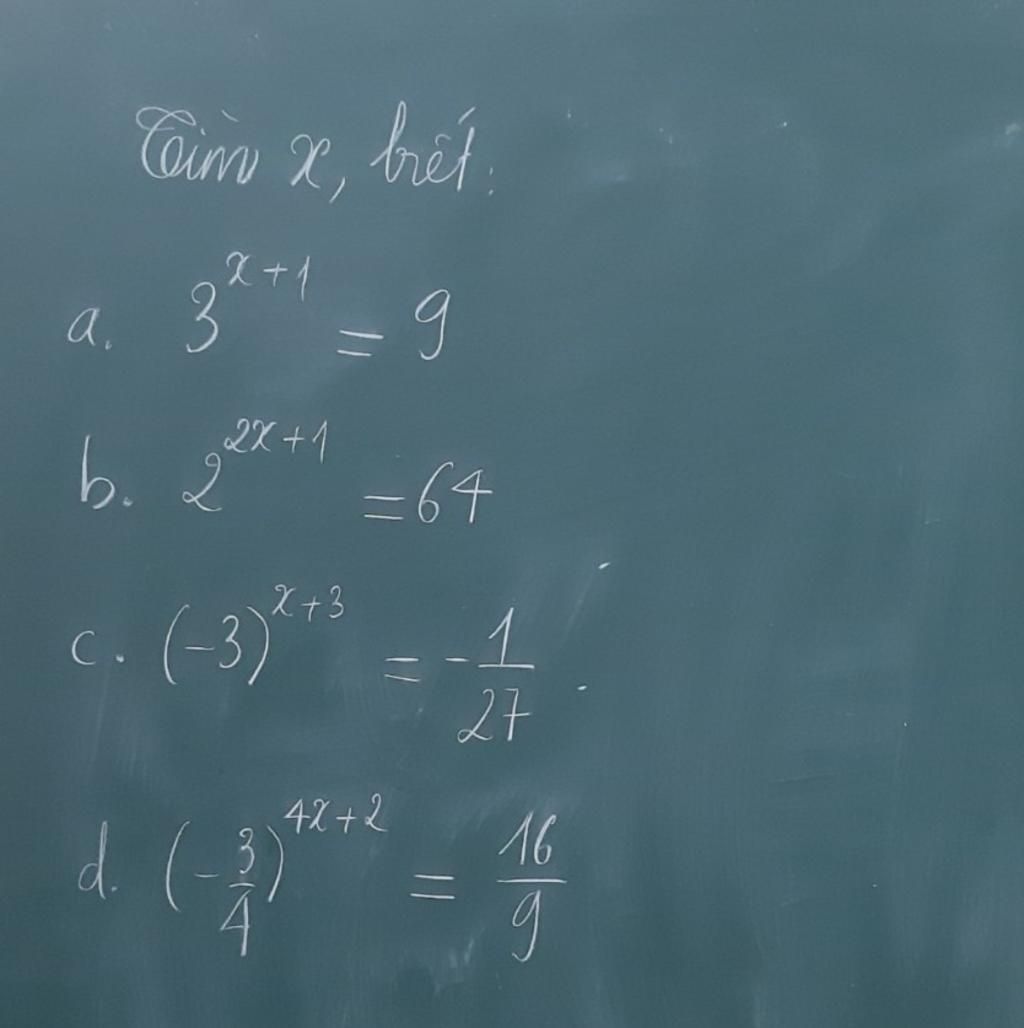 Tìm x, biết:
a. 3^{x+1} = 9
b. 2^{2x+1} = 64
c. (-3)^{x+3} = -\frac{1}{27}.
d. (-\frac{3}{4})^{4x+2} = \frac{16}{9}